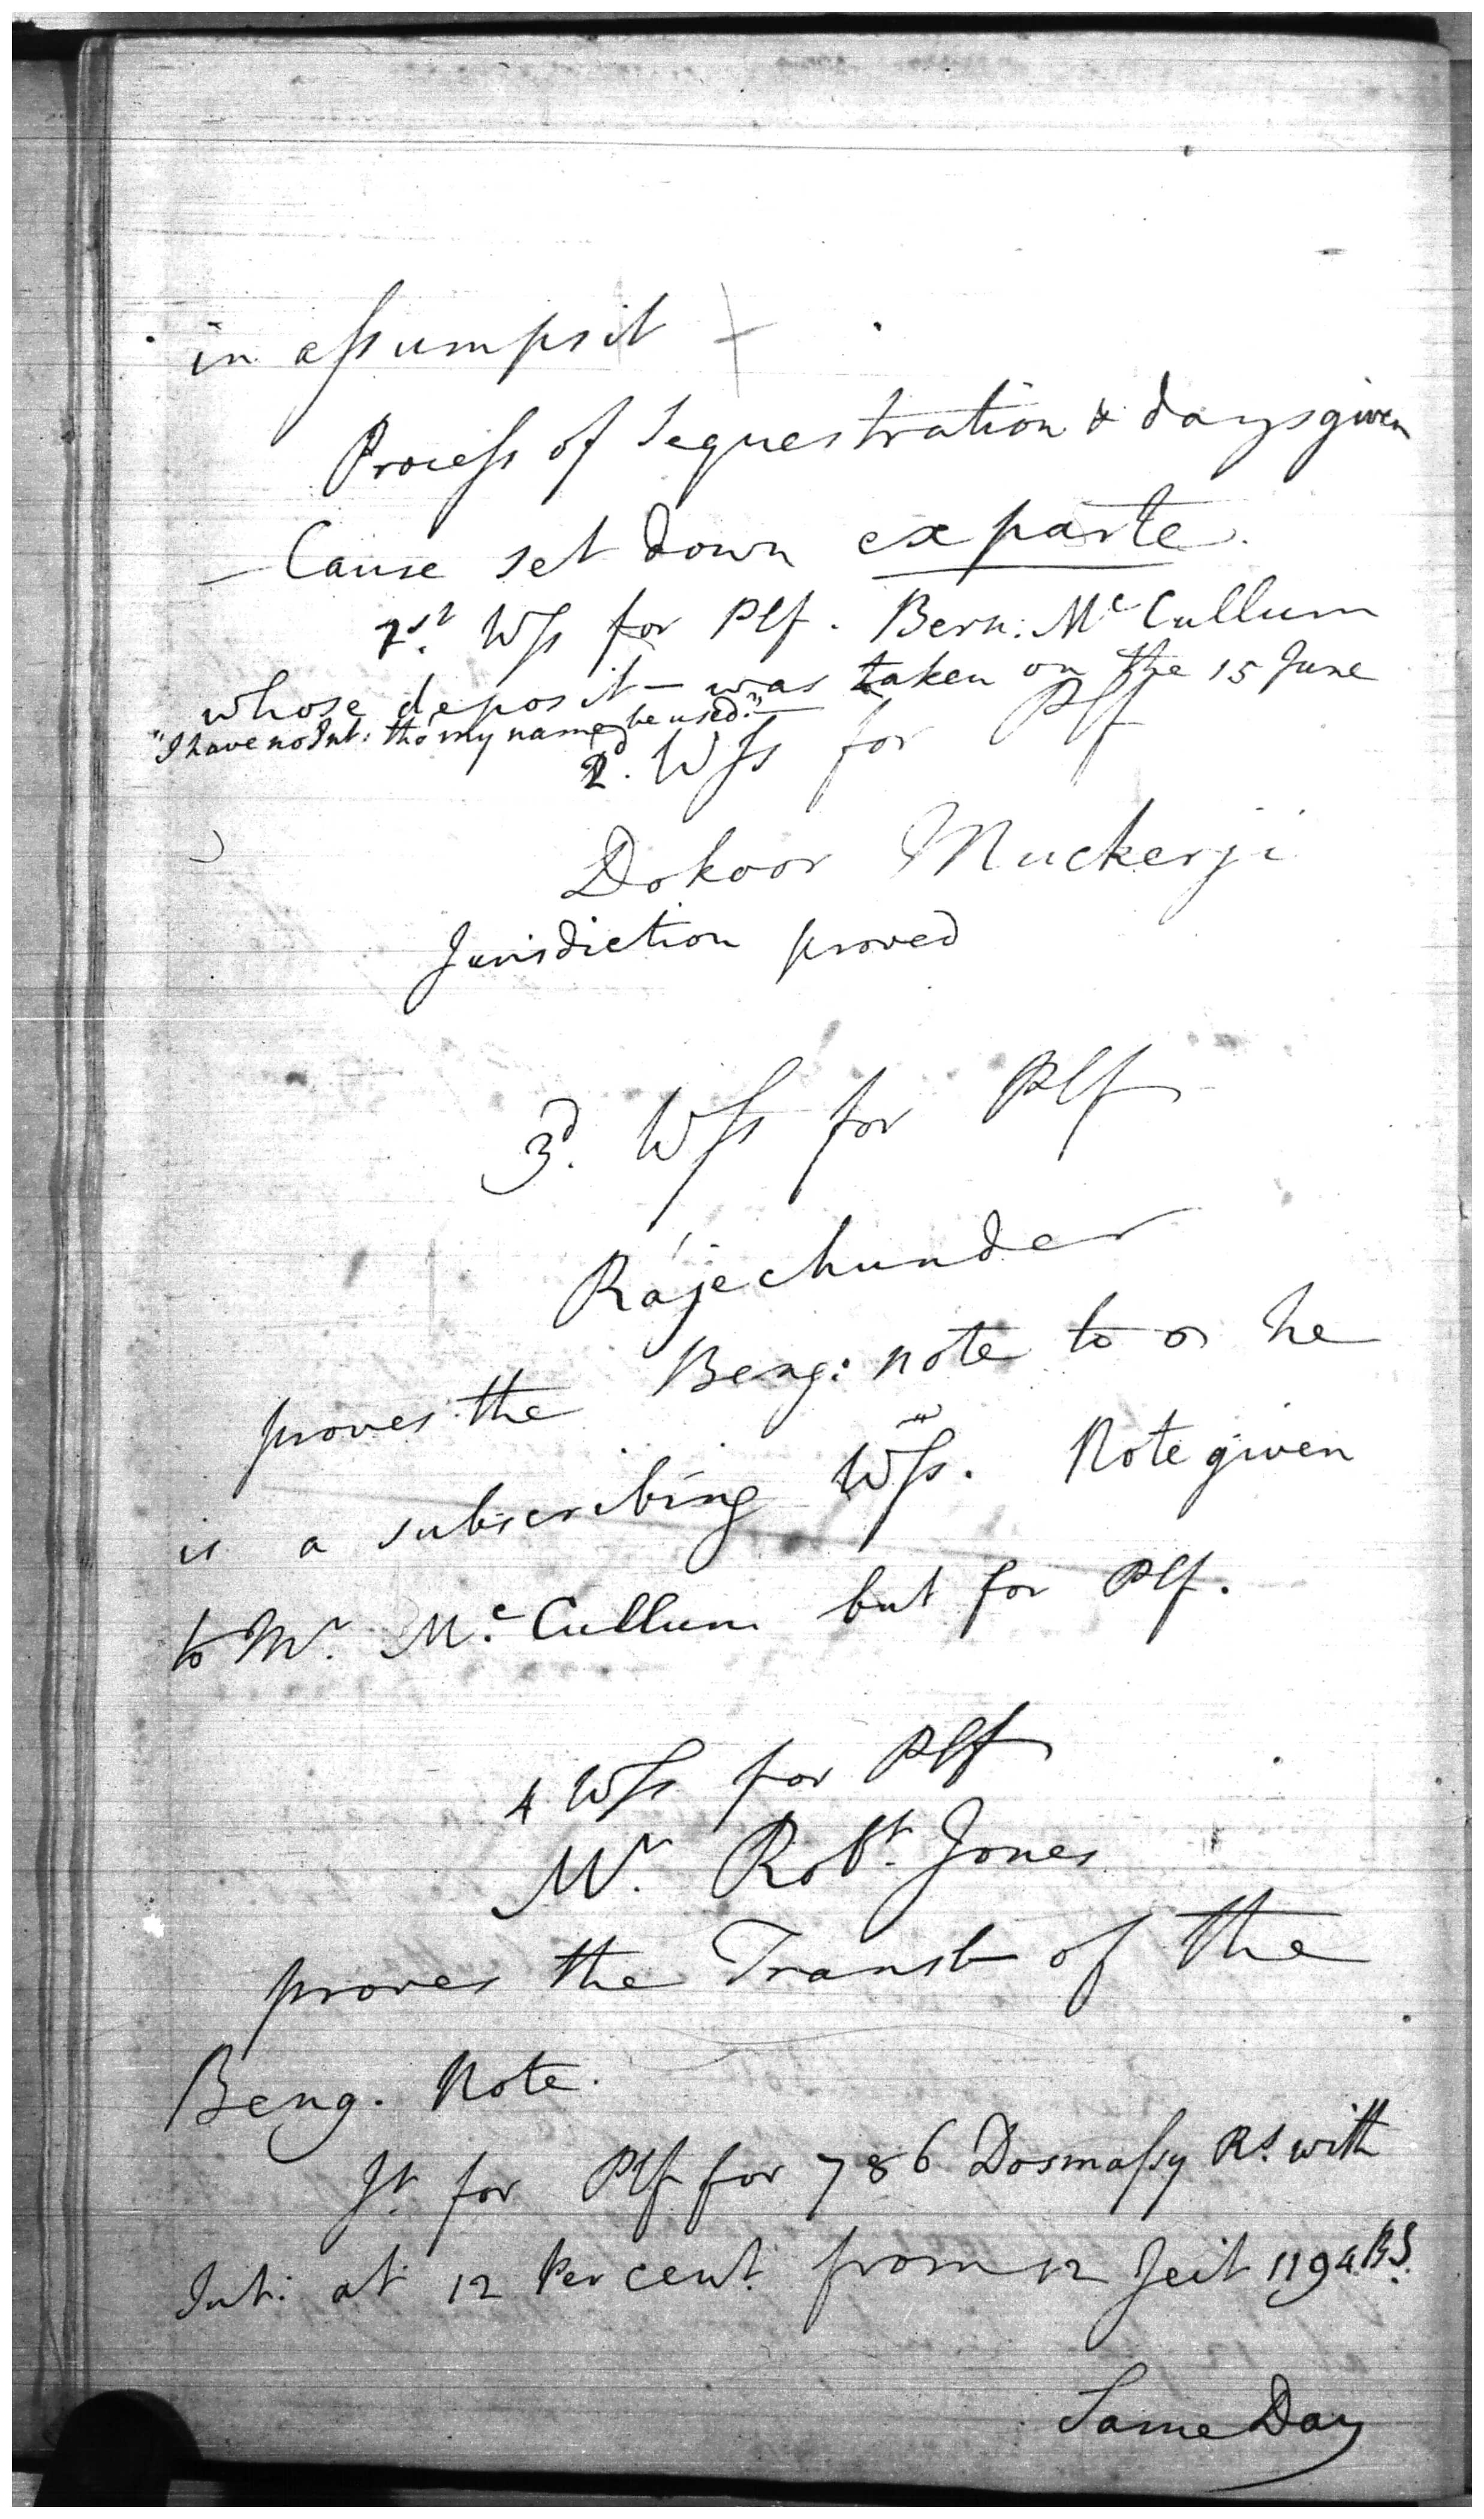 in assumpsit
Process of Sequestration & days given
— Cause set down ex parte.
1st. Wss for Plf. Bern: Mc Cullum
whose deposit— was taken on the 15 June
"I have no Int: tho' my name be used."—
2d. Wss for Plf
Dokoor Muckerji
Jurisdiction proved
3d. Wss for Plf
Rájechunder
proves the Beng: note to he
is a subscribing Wss. Note given
to Mr. Mc. Cullum but for Plf.
4 Wss for Plf
Mr. Robt. Jones
proves the Transl— of the
Beng. Note.
Jt. for Plf for 786 Dosmassy Rs. with
Int: at 12 Per cent. from 12 Jeit 1194. B.S.
Same Day